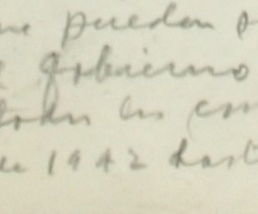 pueden
gobierno
todas las con
de 1942 hast